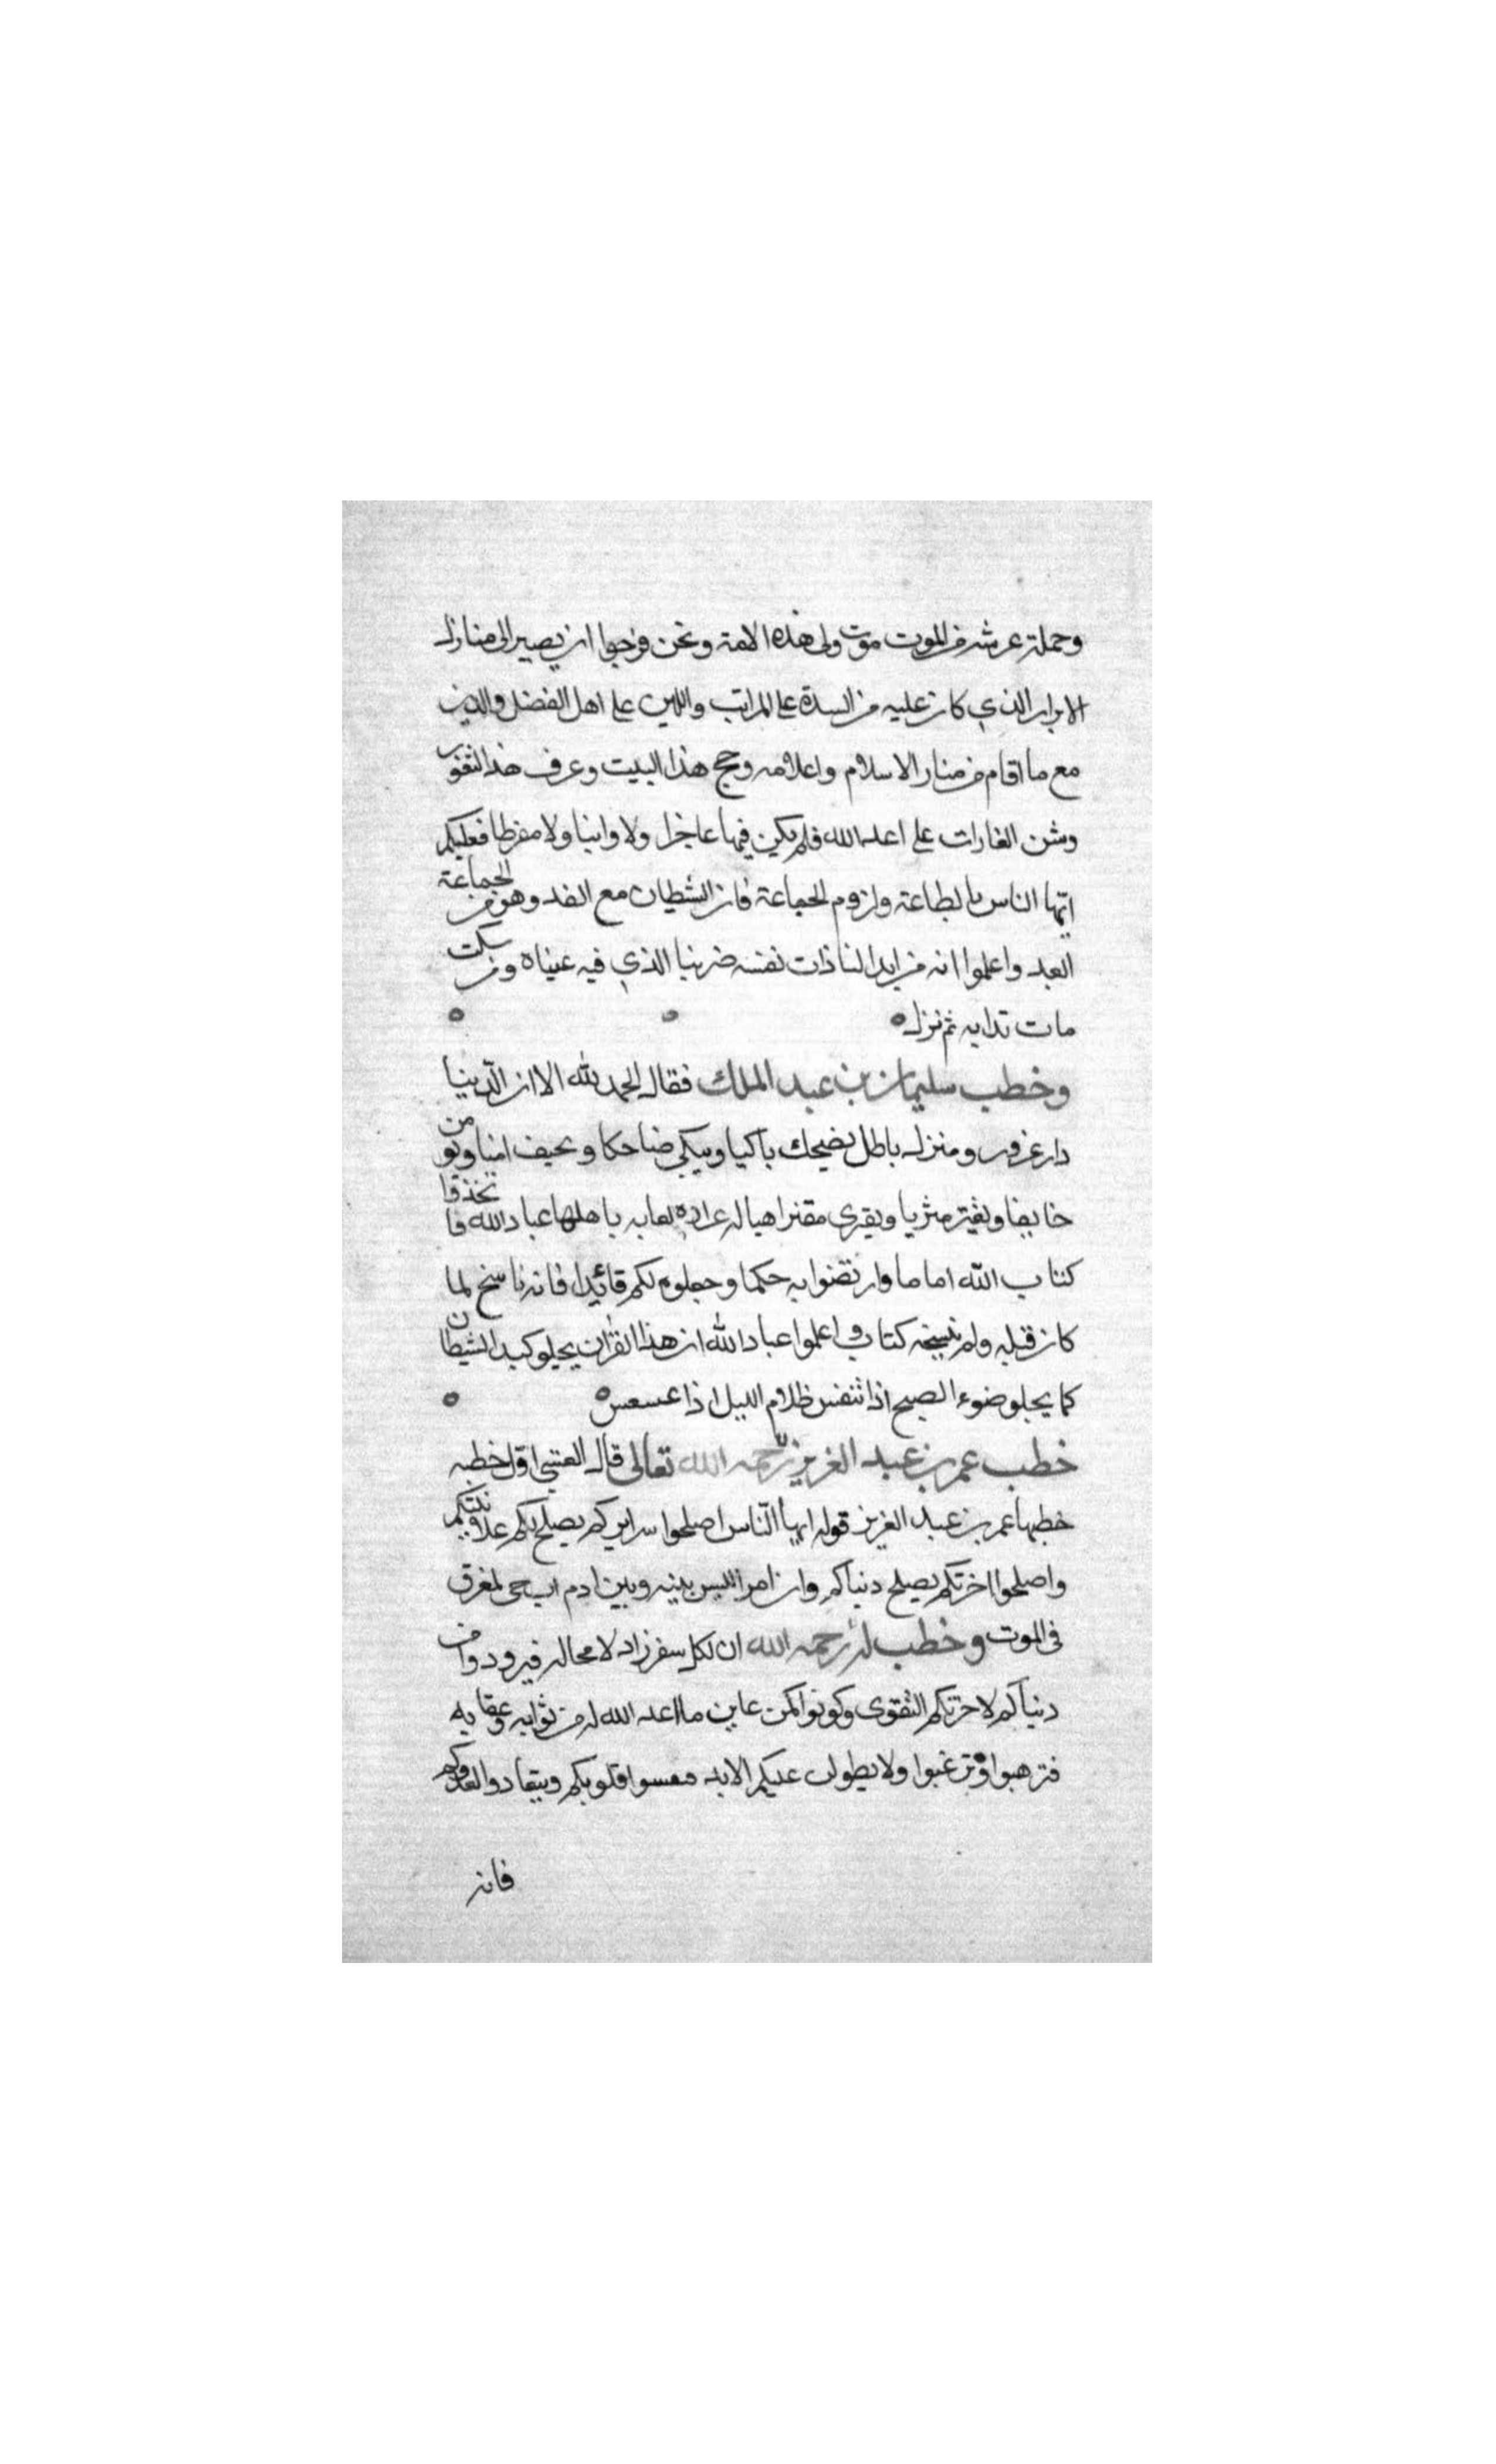 وحملة عرشه من الموت موت ولى هذه الامة ونحن نرجوا ان يصير الى منازل
الابرار الذي كان عليه من السدة على المراتب واللين على اهل الفضل والدين
مع ما اقام من منار الاسلام واعلامه وحج هذا البيت وعرف هذا الثغور
وشن الغارات على اعداء الله فلم يكن فيها عاجزا ولا وانيا ولا مفرطا فعليكم
ايها الناس بالطاعة ولزوم الجماعة فان الشيطان مع الفد وهو من الجماعة
ابعد واعلموا انه من ابدا لنا ذات نفسه ضربنا الذي فيه عيناه ومن سكت
مات بدايه ثم نزل
وخطب سليمان بن عبد الملك فقال الحمد لله الا ان الدنيا
دار غرور ومنزل باطل يضحك باكيا ويبكي ضاحكا ويخيف امنا ويومن
خايفا ويفقر مثريا ويقرى مقترا ميالة غرارة لعابه باهلها عباد الله فاتخذوا
كتاب الله اماما وارتضوا به حكما وجعلوه لكم قائدا فانه ناسخ لما
كان قبله ولم ينسخه كتاب واعلموا عباد الله ان هذا القران يجلو كيد الشيطان
كما يجلو ضوء الصبح اذا تنفس ظلام الليل اذا عسعس
خطب عمر بن عبد العزيز رحمه الله تعالى قال العتبي اول خطبه
خطبها عمر بن عبد العزيز قوله ايها الناس اصلحوا سرايركم يصلح لكم علانيتكم
واصلحوا اخرتكم يصلح دنياكم وان امرا ليس بينه وبين ادم اب حي لمغرق
في الموت وخطب له رحمه الله ان لكل سفر زاد لا محاله فتزودوا من
دنياكم لاخرتكم التقوى وكونوا كمن عاين ما اعد الله له من ثوابه وعقابه
فترهبوا وترغبوا ولا يطولن عليكم الابد فتقسوا قلوبكم وتنقادوا لعدوكم
فانه